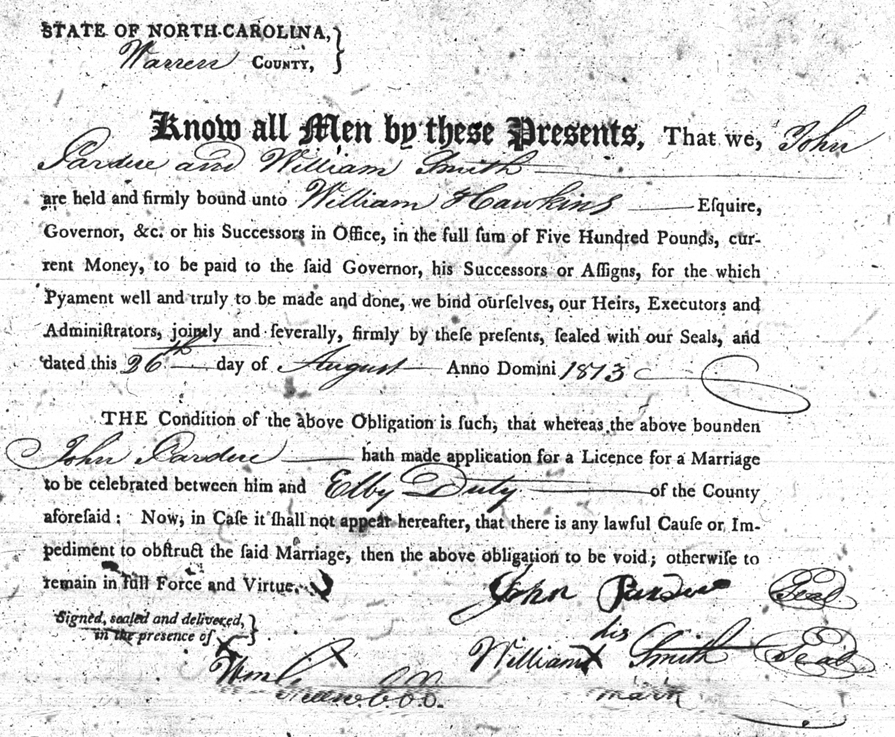 STATE OF NORTH-CAROLINA, }
Warren COUNTY,
Know all Men by these Presents, That we, John
Pardue and William Smith
are held and firmly bound unto William Hawkins Eſquire,
Governor, &c. or his Succeſſors in Office, in the full ſum of Five Hundred Pounds, cur-
rent Money, to be paid to the ſaid Governor, his Succeſſors or Aſſigns, for the which
Pyament well and truly to be made and done, we bind ourſelves, our Heirs, Executors and
Adminiſtrators, jointly and ſeverally, firmly by theſe preſents, ſealed with our Seals, and
dated this 26th day of August Anno Domini 1813
THE Condition of the above Obligation is ſuch, that whereas the above bounden
John Pardue hath made application for a Licence for a Marriage
to be celebrated between him and Elby Duty of the County
aforeſaid: Now, in Caſe it ſhall not appear hereafter, that there is any lawful Cauſe or Im-
pediment to obſtruct the ſaid Marriage, then the above obligation to be void; otherwiſe to
remain in full Force and Virtue.
John Pardue Seal
Signed, sealed and delivered, }
in the presence of
his
William X Smith Seal
mark
Wm